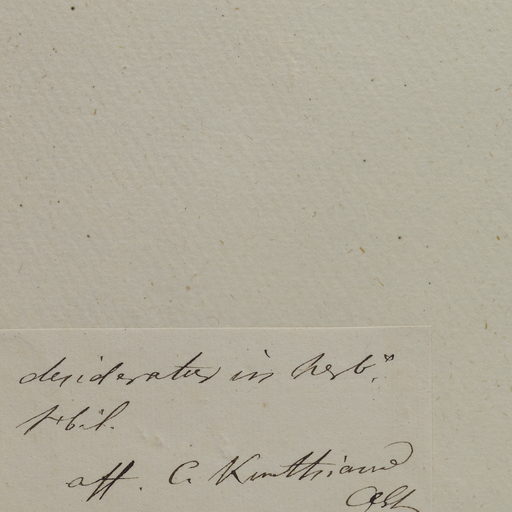 desideratur in herb.
aff. C. Kunthiana